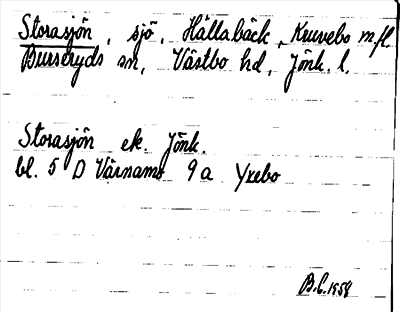 Storasjön, sjö, Hällabäck, Kruvebo m.fl.
Burseryds sn, Västbo hd, Jönk. l.
Storasjön ek. Jönk.
bl. 5 D Värnamo 9a Yxebo
B.C. 1958